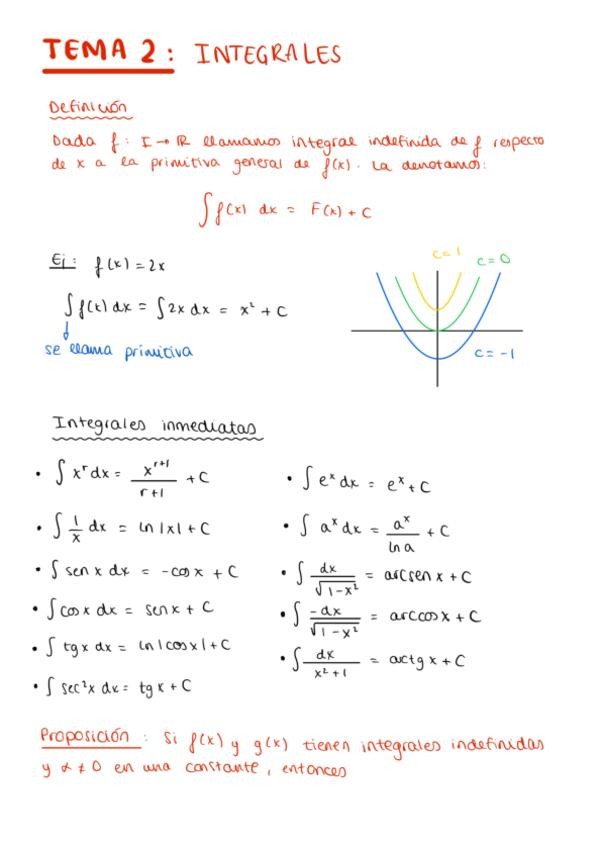 TEMA 2: INTEGRALES
Definición
Dada f: I → ℝ llamamos integral indefinida de f respecto
de x a la primitiva general de f(x). La denotamos:
∫ f(x) dx = F(x) + C
Ej: f(x) = 2x
∫ f(x) dx = ∫ 2x dx = x² + C
se llama primitiva
c = 1
c = 0
c = -1
Integrales inmediatas
• ∫ xʳ dx = xʳ⁺¹/(r+1) + C
• ∫ 1/x dx = ln |x| + C
• ∫ sen x dx = -cos x + C
• ∫ cos x dx = sen x + C
• ∫ tg x dx = ln |cos x| + C
• ∫ sec² x dx = tg x + C
• ∫ eˣ dx = eˣ + C
• ∫ aˣ dx = aˣ/ln a + C
• ∫ dx/√(1-x²) = arcsen x + C
• ∫ -dx/√(1-x²) = arccos x + C
• ∫ dx/(x²+1) = arctg x + C
Proposición: Si f(x) y g(x) tienen integrales indefinidas
y α ≠ 0 en una constante, entonces